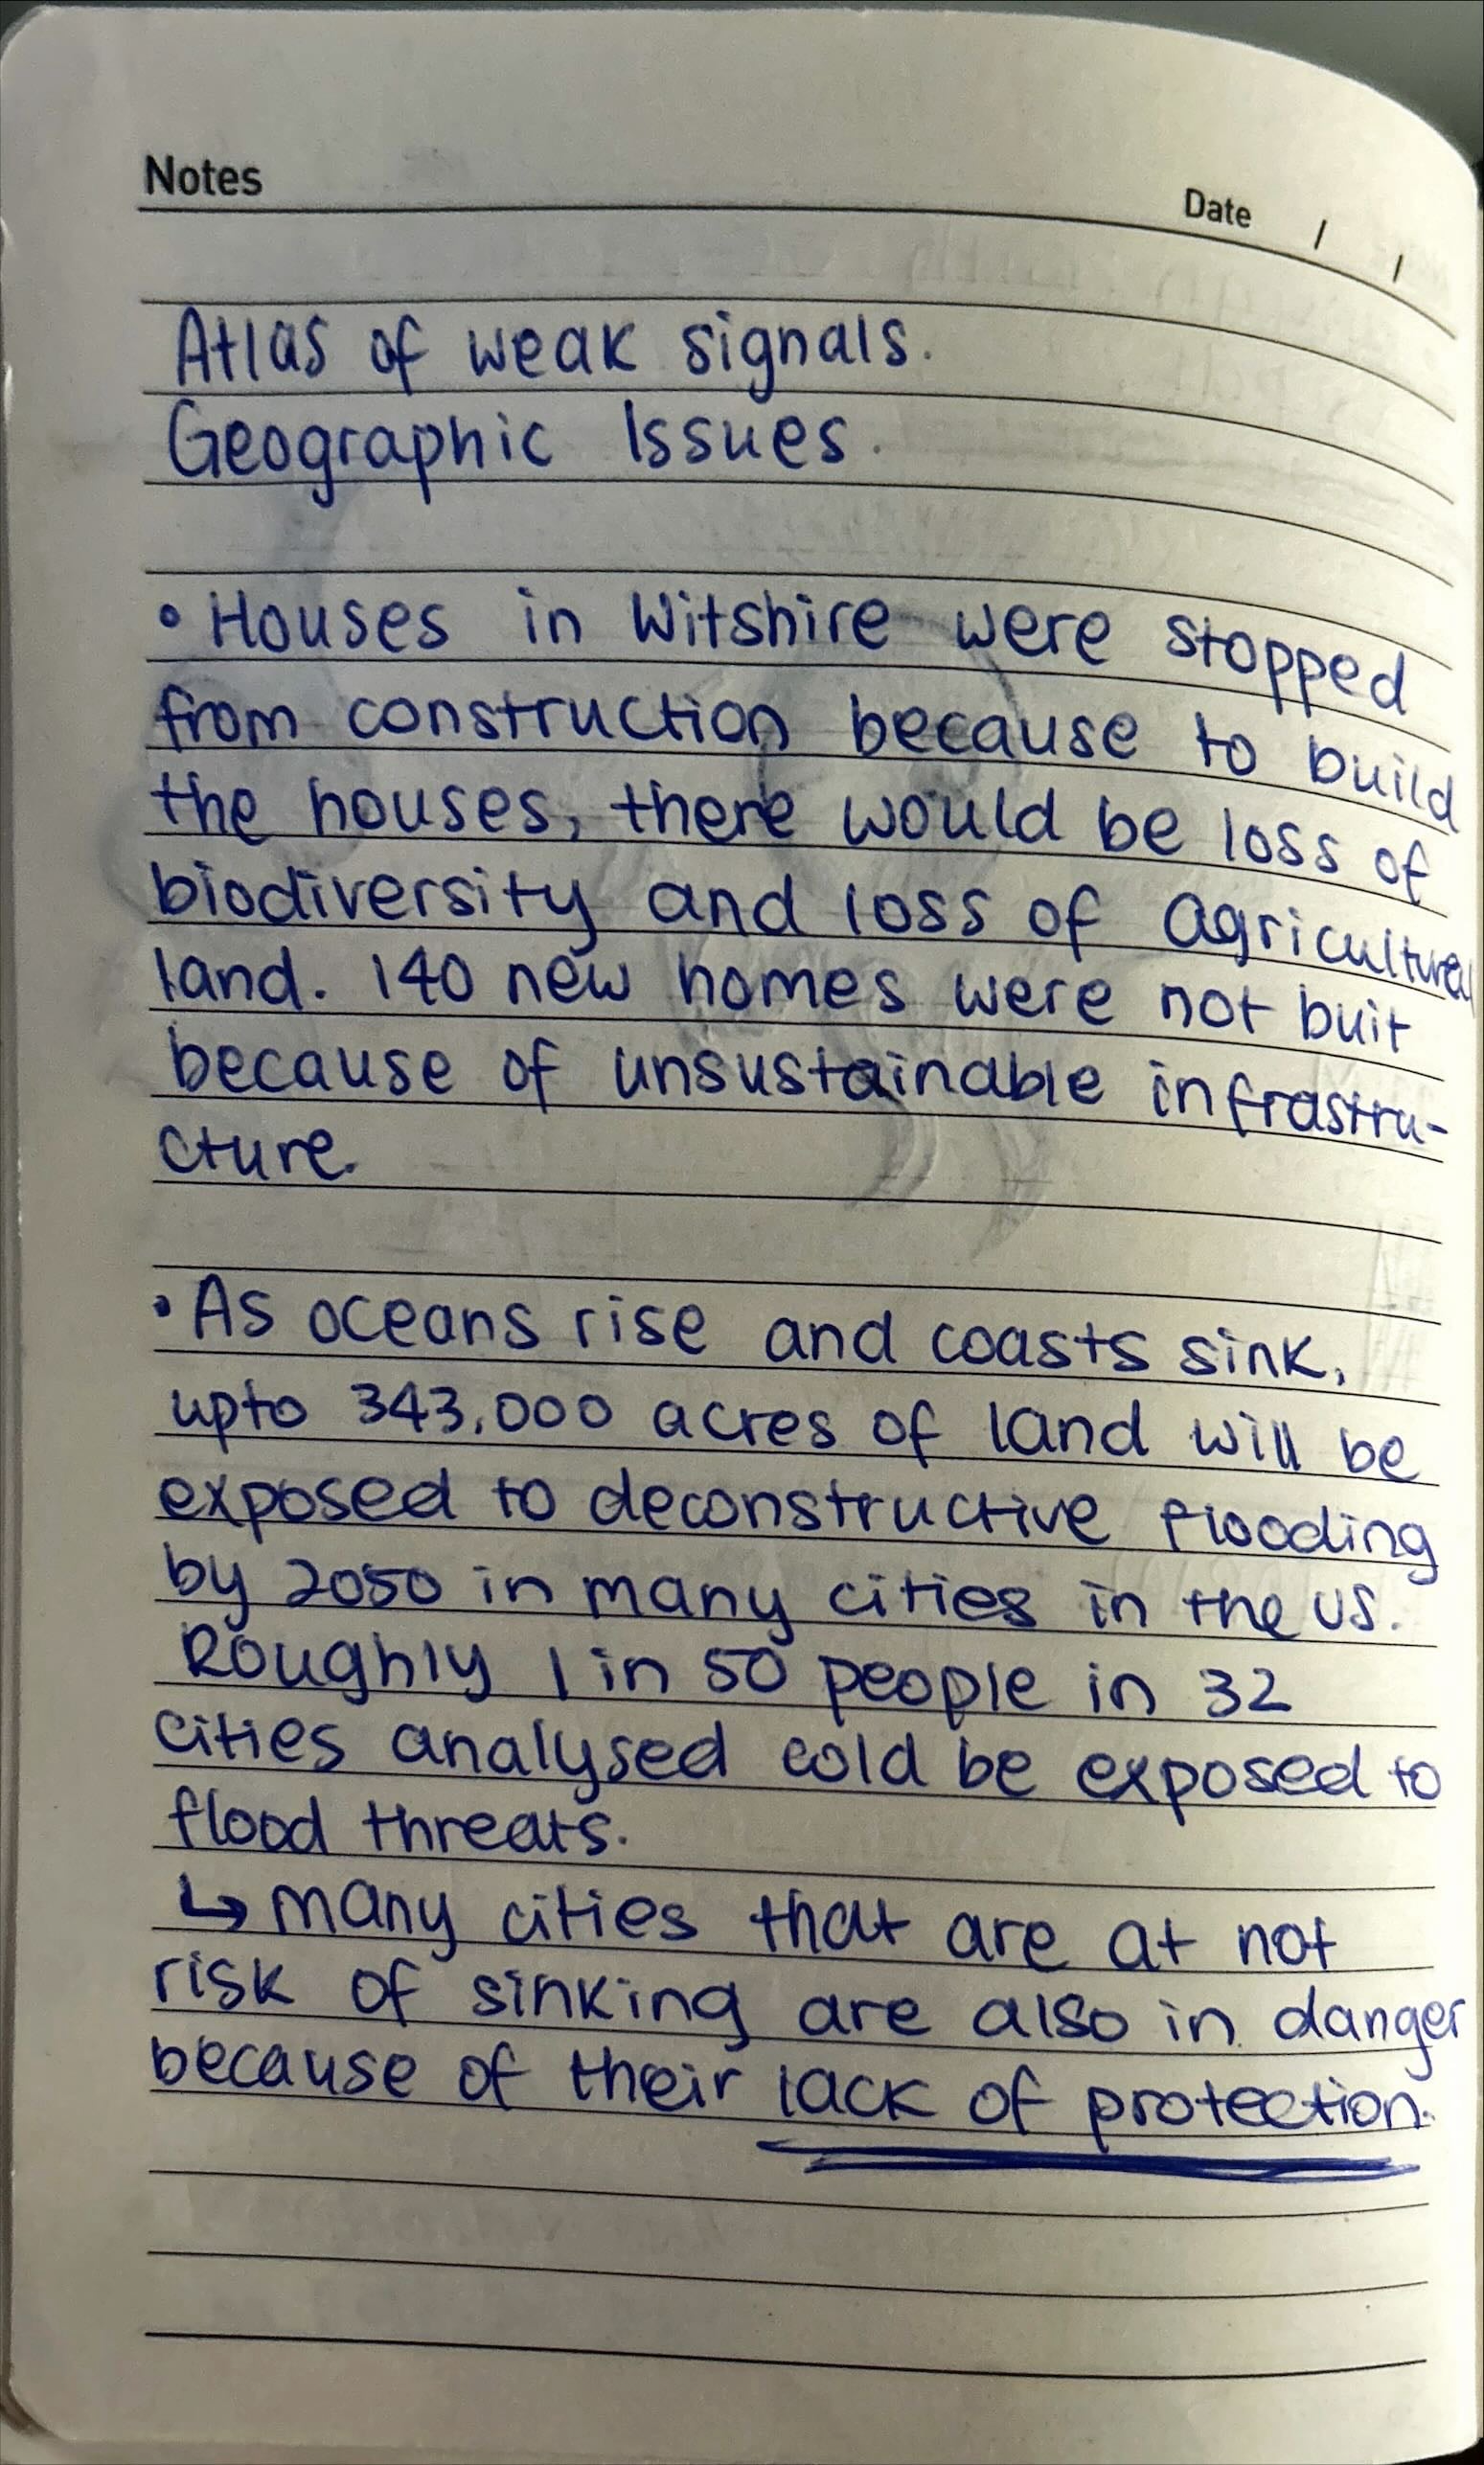 Notes
Date / /
Atlas of weak signals.
Geographic Issues.
• Houses in Witshire were stopped
from construction because to build
the houses, there would be loss of
biodiversity and loss of agricultural
land. 140 new homes were not buit
because of unsustainable infrastru-
cture.
• As oceans rise and coasts sink,
upto 343,000 acres of land will be
exposed to deconstructive flooding
by 2050 in many cities in the US.
Roughly 1 in 50 people in 32
cities analysed cold be exposed to
flood threats.
↳ many cities that are at not
risk of sinking are also in danger
because of their lack of protection.